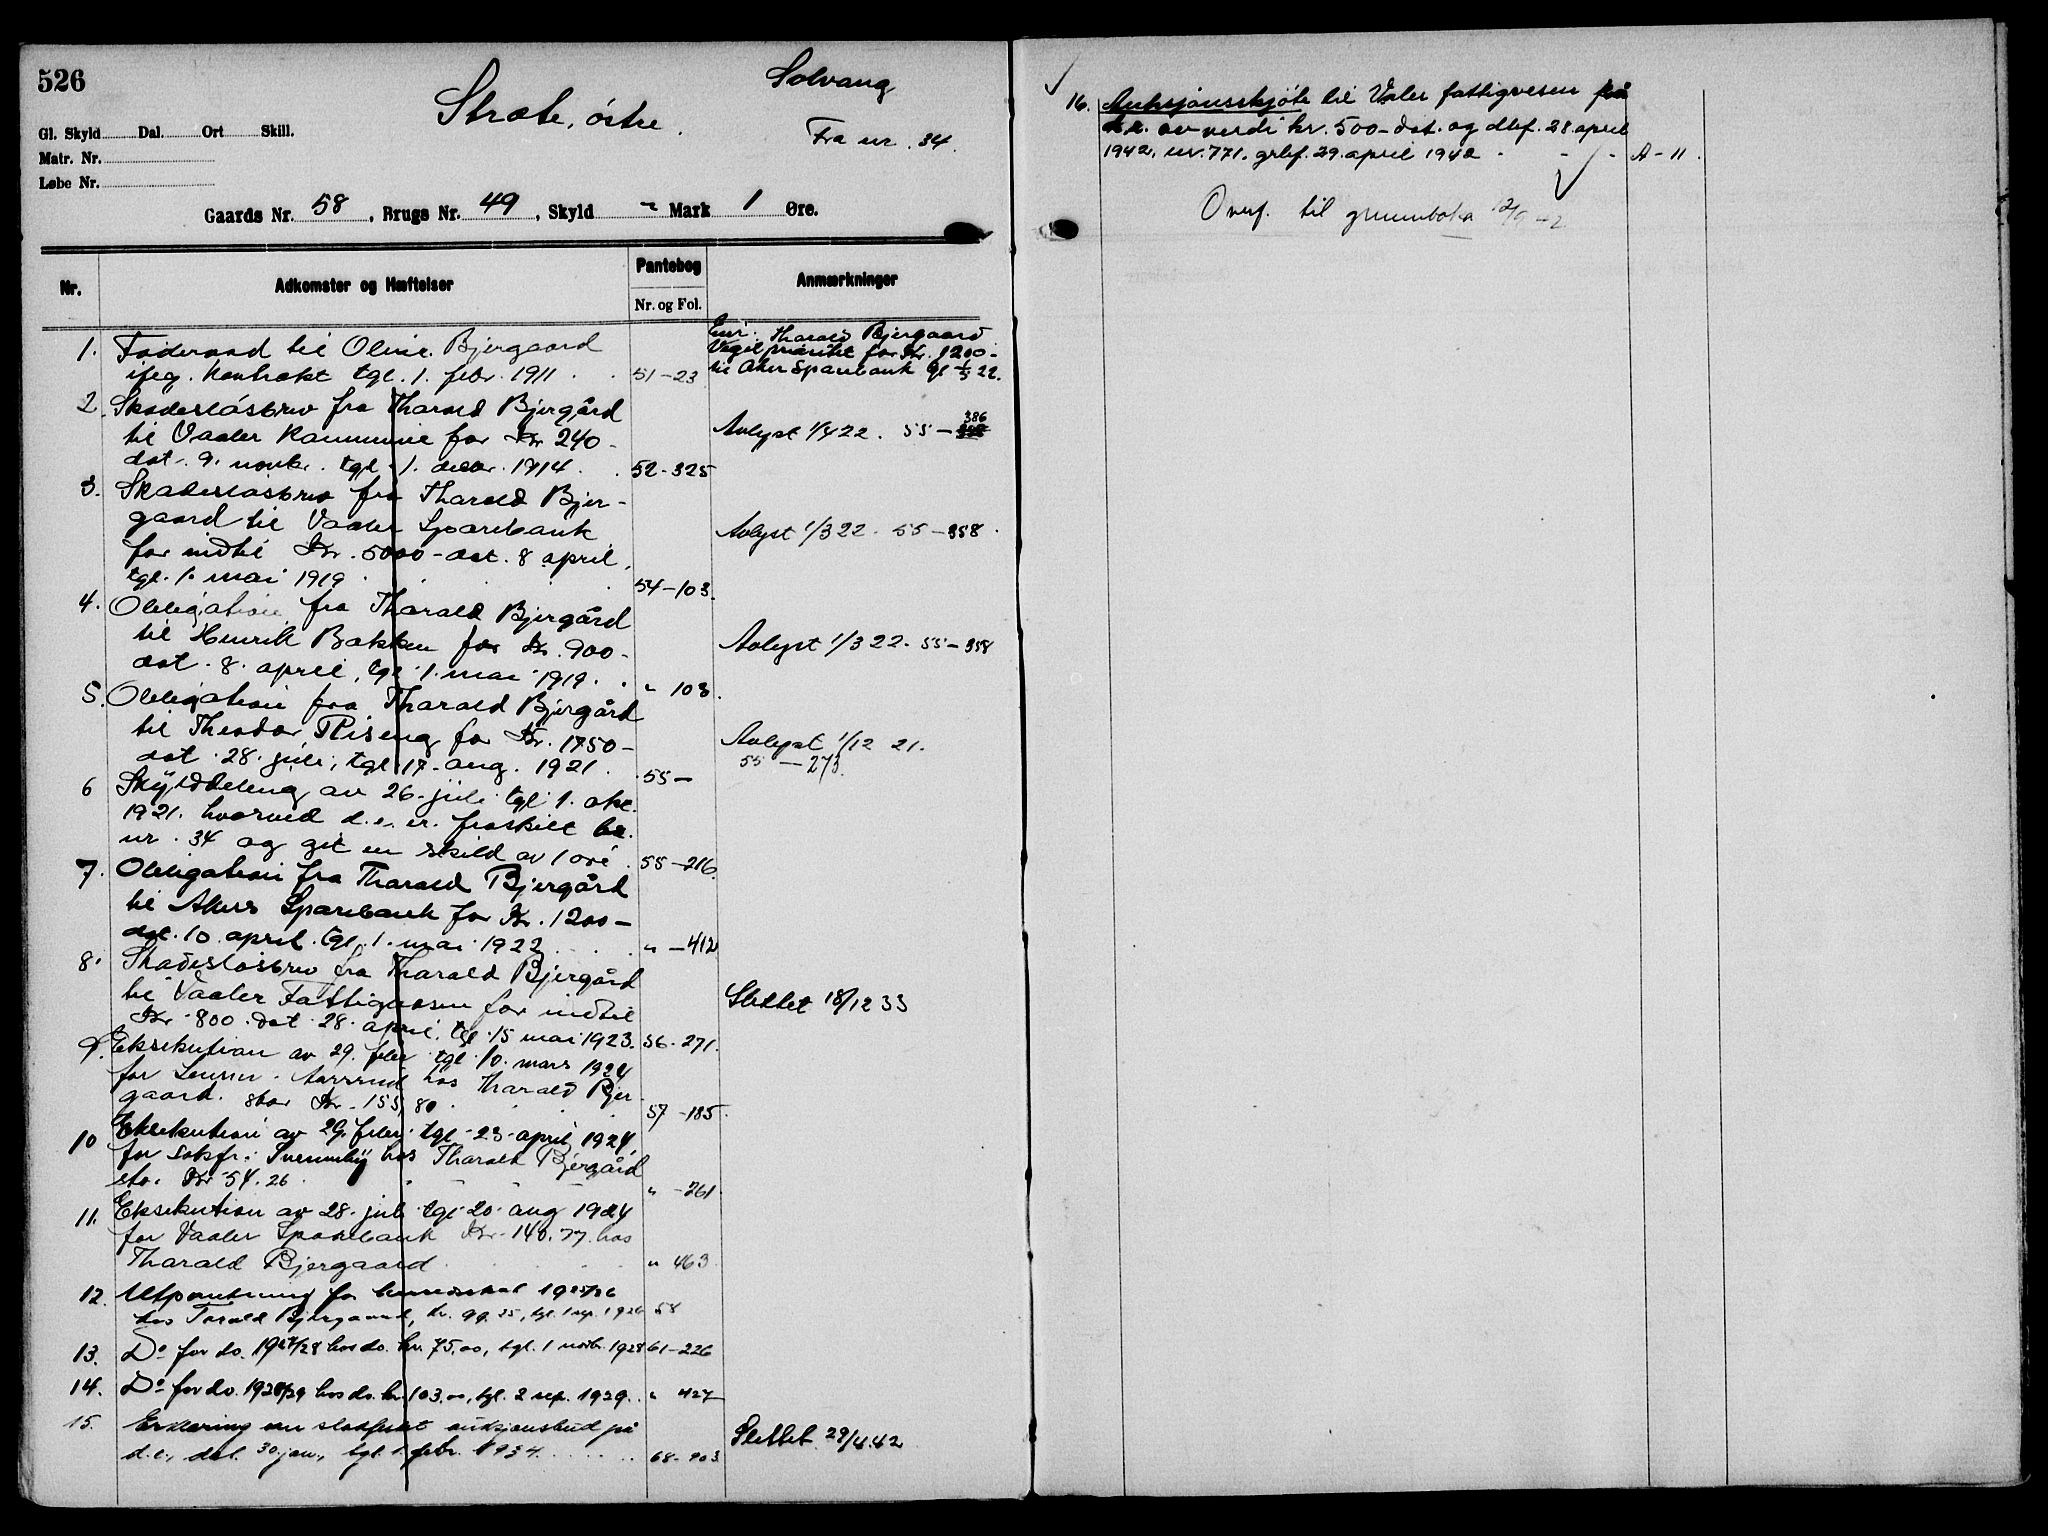 526
Solvang
Stræte, östre.
Fra nr. 34.
Gl. Skyld Dal. Ort Skill.
Matr. Nr.
Løbe Nr.
Gaards Nr. 58, Brugs Nr. 49, Skyld " Mark 1 Øre.
Nr. Adkomster og Hæftelser Pantebog Nr. og Fol. Anmærkninger
1. Føderaad til Oline Bjergaard
iføg. Kontrakt tgl. 1. febr. 1911 . . 51-23
Tharald Bjergaard
Vegit prioritet for Kr. 1200-
til Aker Sparebank tgl 1/5 22.
2. Skadesløsbrev fra Tharald Bjergård
til Vaaler Kommune for Kr 240-
dat. 9. novbr. tgl. 1. decbr. 1914 . . 52-325
Avlyst 1/4 22. 55-386
3. Skadesløsbrev fra Tharald Bjer-
gaard til Vaaler Sparebank
for indtil Kr. 5000- dat. 8 april,
tgl. 1. mai 1919 . . 54-103.
Avlyst 1/3 22. 55-358.
4. Obligation fra Tharald Bjergård
til Henrik Bakken for Kr. 900-
dat. 8. april, tgl 1. mai 1919. . " 103.
Avlyst 1/3 22. 55-358
5. Obligation fra Tharald Bjergård
til Theodor Riseng for Kr. 1750-
dat. 28. juli, tgl 17. aug. 1921. . 55-
Avlyst 1/12 21.
55-273.
6 Skylddeling av 26. juli tgl. 1. okt.
1921. hvorved d.e. er fraskilt br.
nr. 34 og git en skild av 1 øre . 55-216.
7. Obligation fra Tharald Bjergård
til Akers Sparebank for Kr. 1200-
dat. 10. april. tgl. 1. mai 1922 . . . " -412
8. Skadesløsbrev fra Tharald Bjergård
til Vaaler Fattigvæsen for indtil
Kr. 800. dat. 28. april, tgl. 15 mai 1923. 56-271.
Slettet 18/12 33
9. Eksekution av 29. febr. tgl. 10. mars 1924
for hos Tharald Bjer-
gaard. stor Kr. 155,80 . . 57-185.
10 Eksekution av 29. febr. tgl. 23. april 1924
for hos Tharald Bjergård
stor Kr 54.26 . . " -261.
11. Eksekution av 28. juli tgl. 20. aug 1924
for Vaaler Sparebank Kr. 140.77. hos
Tharald Bjergaard . . " 463.
12. Utpantning for 1925/26
hos Tarald Bjergaard, kr. 99.25, tgl. 1 sep. 1926 58
13. Do for do. 1927/28 hos do. kr. 75.00, tgl. 1 novbr. 1928 61-226
14. Do for do. 1928/29 hos do. kr. 103.00, tgl. 2 sep. 1929. . " 427
15. Erklæring om stadfestet auksjonsbud på
d.e., dat. 30 jan., tgl. 1. febr. 1934. . . . . 68-903.
Slettet 29/4.42
16. Auksjonsskjöte til Våler fattigvesen på
d.e. av verdi kr. 500- dat. og dbf. 28 april
1942, nr. 771. grbf. 29. april 1942 - - - A-11.
Overf. til grunnboka